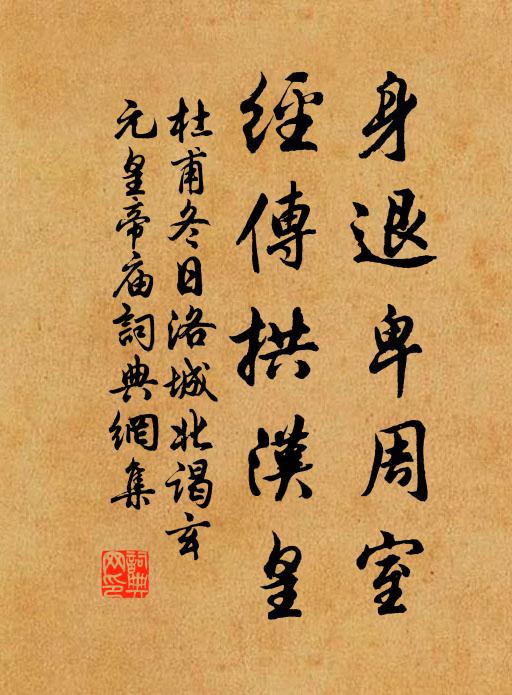 身退卑周室
經傳拱漢皇
杜甫冬日洛城北謁玄
元皇帝庙詞典網集
詞典网印